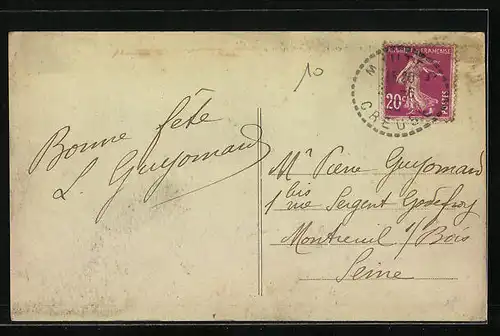 10
RÉPUBLIQUE FRANÇAISE
20c
POSTES
CREUSE
Bonne fête
L. Guyomard
Mr Pierre Guyomard
1 bis rue Sergent Godefroy
Montreuil s/Bois
Seine